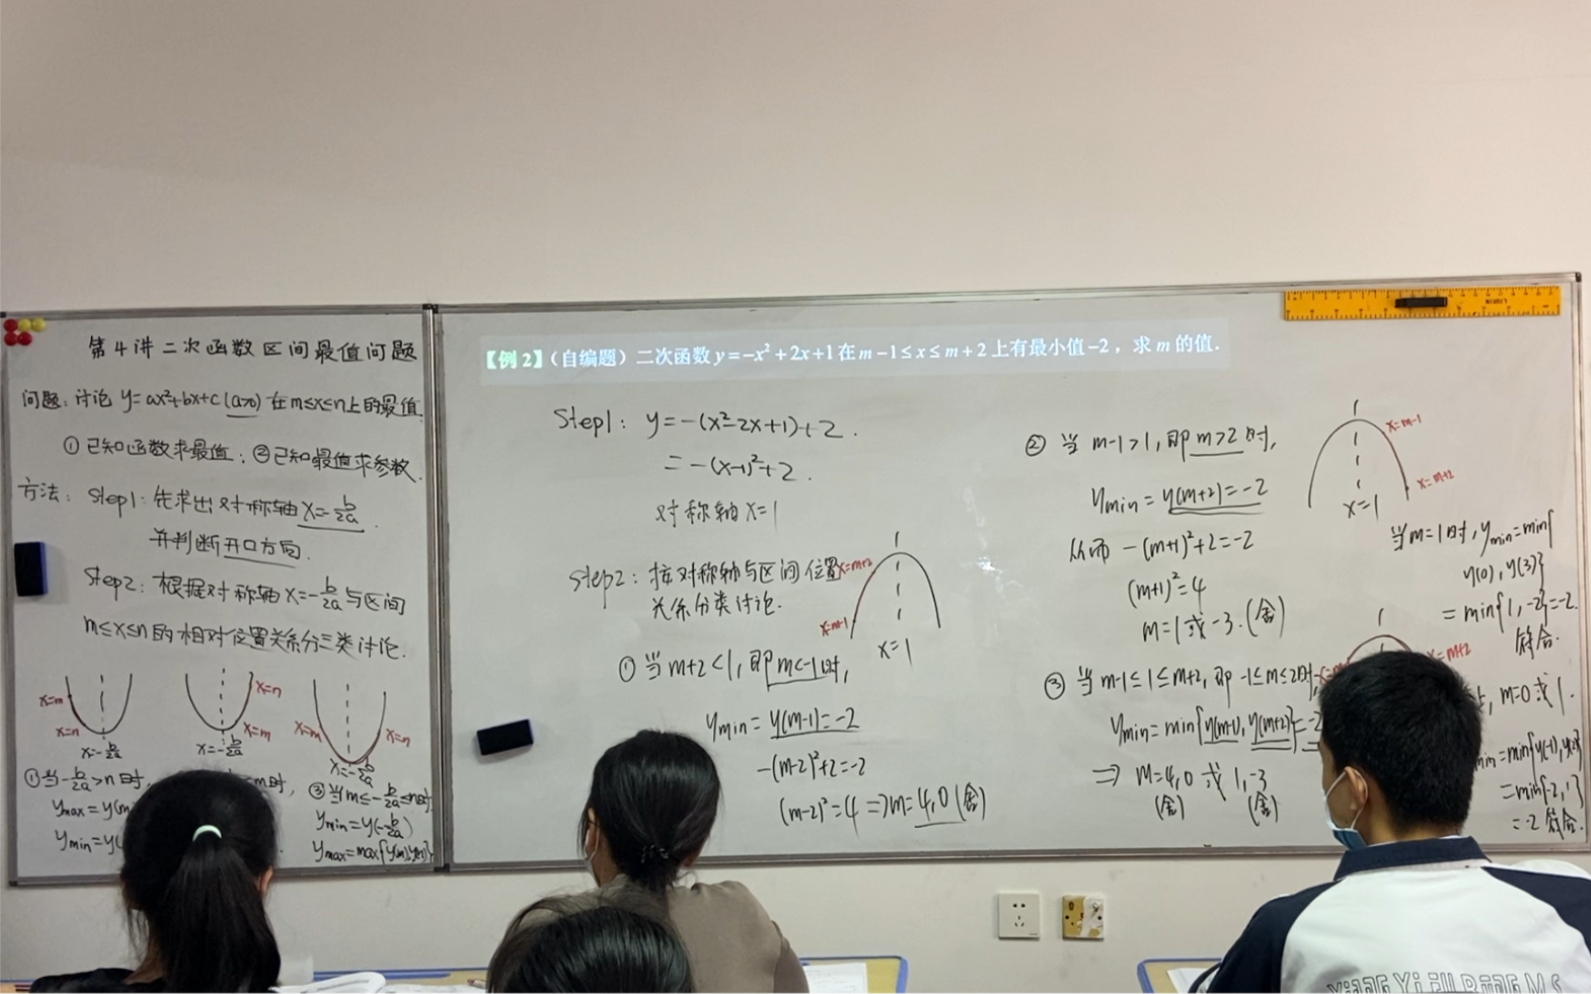 第4讲 二次函数区间最值问题
问题:讨论 y=ax²+bx+c(a>0) 在m≤x≤n上的最值.
①已知函数求最值;②已知最值求参数.
方法: Step1: 先求出对称轴 x=-b/2a.
并判断开口方向.
Step2: 根据对称轴 x=-b/2a 与区间
m≤x≤n 的相对位置关系分三类讨论.
x=m
x=n
x=-b/2a
x=n
x=m
x=-b/2a
x=m
x=n
x=-b/2a
①当-b/2a>n时,
ymax=y(m
ymin=y(
=m时,
③当m≤-b/2a≤n时
ymin=y(-b/2a)
ymax=max{y(m),y(n)}
【例2】(自编题)二次函数 y=-x²+2x+1 在 m-1≤x≤m+2 上有最小值-2,求 m 的值.
Step1: y=-(x²-2x+1)+2.
=-(x-1)²+2.
对称轴 x=1
Step2: 按对称轴与区间位置
关系分类讨论.
x=m+2
x=m-1
x=1
①当 m+2<1,即 m<-1时,
ymin=y(m-1)=-2
-(m-2)²+2=-2
(m-2)²=4 => m=4,0(舍)
②当 m-1>1,即 m>2时,
ymin=y(m+2)=-2
从而 -(m+1)²+2=-2
(m+1)²=4
m=1或-3.(舍)
x=m-1
x=m+2
x=1
③当 m-1≤1≤m+2,即 -1≤m≤2时,
ymin=min{y(m-1),y(m+2)}=-2
=> m=4,0 或 1,-3
(舍) (舍)
当m=1时,ymin=min{
y(0),y(3)}
=min{1,-2}=-2.
符合.
x=m+2
m=0或1.
min=min{y(-1),y(2)}
=min{-2,1}
=-2 符合.